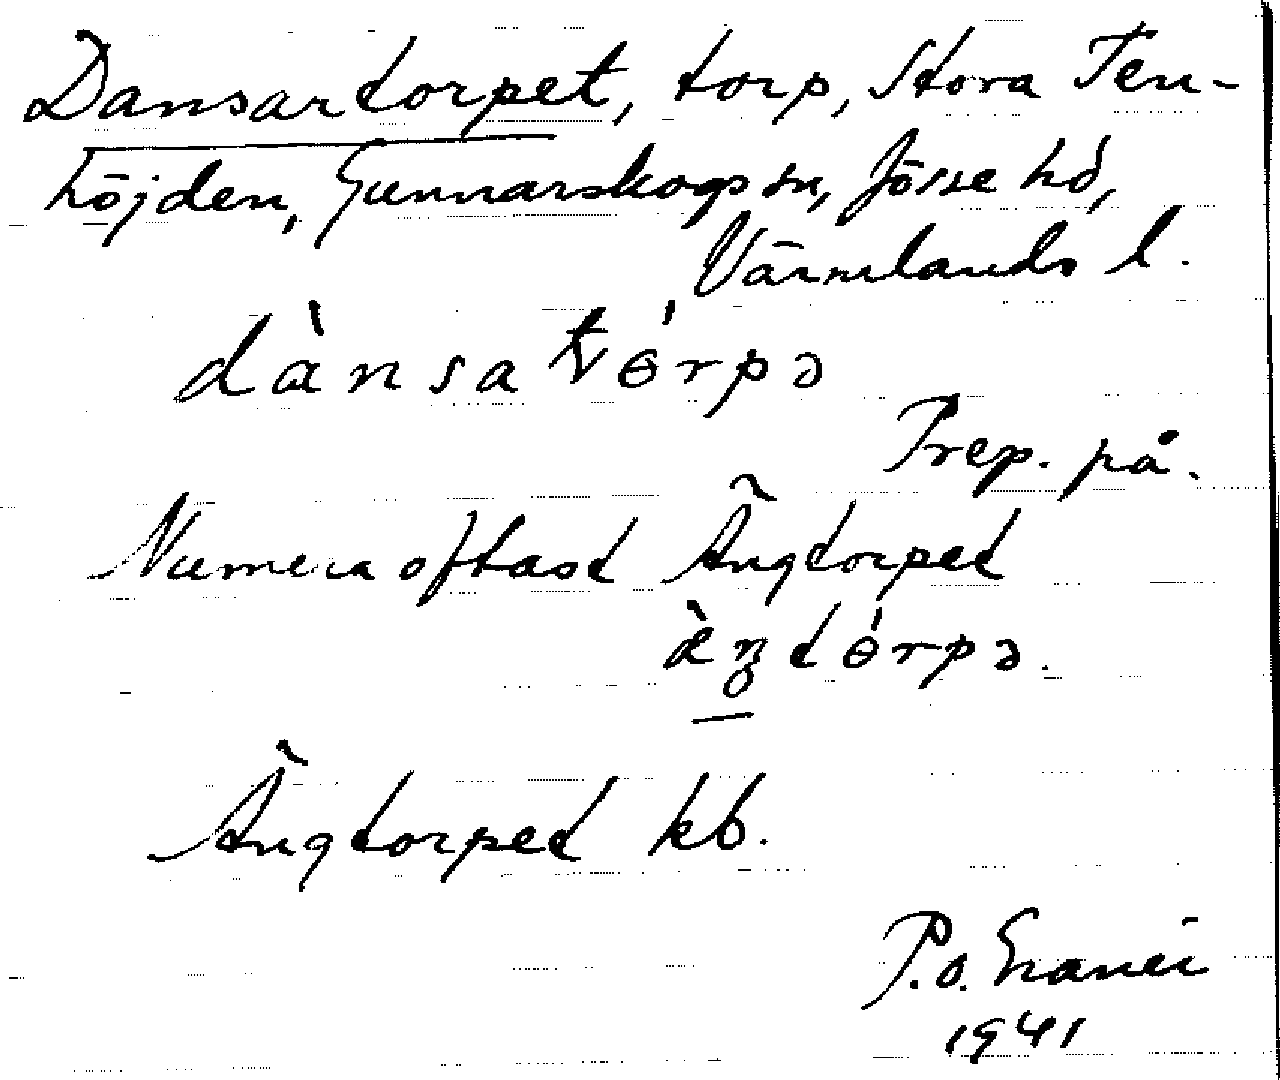 Dansartorpet, torp, Stora Ten-
höjden, Gunnarskogs sn, Jösse hd,
Värmlands l.
dànsatɵ́rpə
Prep. på.
Numera oftast Ängtorpet
æ̀ŋtɵ́rpə.
Ängtorpet kb.
P.o.
1941